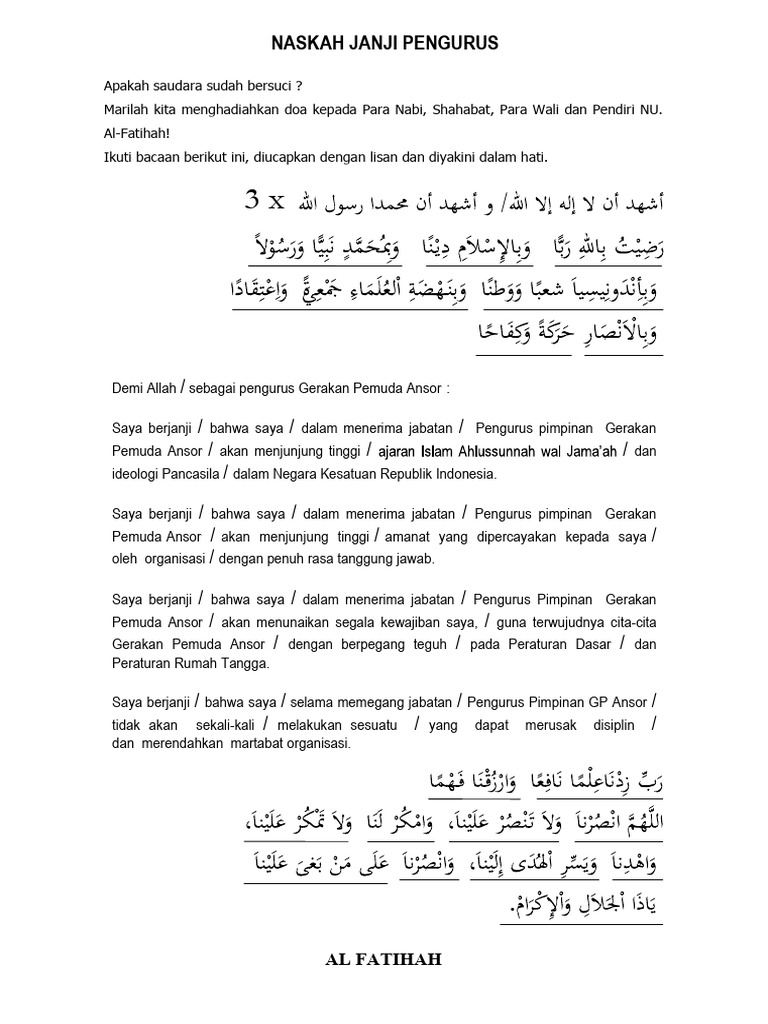 NASKAH JANJI PENGURUS
Apakah saudara sudah bersuci ?
Marilah kita menghadiahkan doa kepada Para Nabi, Shahabat, Para Wali dan Pendiri NU.
Al-Fatihah!
Ikuti bacaan berikut ini, diucapkan dengan lisan dan diyakini dalam hati.
أشهد أن لا إله إلا الله/ و أشهد أن محمدا رسول الله 3 x
رَضِيْتُ بِاللهِ رَبًّا وَبِالإِسْلاَمِ دِيْنًا وَبِمُحَمَّدٍ نَبِيًّا وَرَسُوْلاً
وَبِأِنْدَونِيسِياَ شعبًا وَوَطنًا وَبِنَهْضَةِ اْلعُلَمَاءِ جَمْعِيَّةً وَاِعْتِقَادًا
وَبِالْاَنْصَارِ حَرَكَةً وَكِفَاحًا
Demi Allah / sebagai pengurus Gerakan Pemuda Ansor :
Saya berjanji / bahwa saya / dalam menerima jabatan / Pengurus pimpinan Gerakan
Pemuda Ansor / akan menjunjung tinggi / ajaran Islam Ahlussunnah wal Jama’ah / dan
ideologi Pancasila / dalam Negara Kesatuan Republik Indonesia.
Saya berjanji / bahwa saya / dalam menerima jabatan / Pengurus pimpinan Gerakan
Pemuda Ansor / akan menjunjung tinggi / amanat yang dipercayakan kepada saya /
oleh organisasi / dengan penuh rasa tanggung jawab.
Saya berjanji / bahwa saya / dalam menerima jabatan / Pengurus Pimpinan Gerakan
Pemuda Ansor / akan menunaikan segala kewajiban saya, / guna terwujudnya cita-cita
Gerakan Pemuda Ansor / dengan berpegang teguh / pada Peraturan Dasar / dan
Peraturan Rumah Tangga.
Saya berjanji / bahwa saya / selama memegang jabatan / Pengurus Pimpinan GP Ansor /
tidak akan sekali-kali / melakukan sesuatu / yang dapat merusak disiplin /
dan merendahkan martabat organisasi.
رَبِّ زِدْنَاعِلْمًا نَافِعًا وَارْزُقْنَا فَهْمًا
اللَّهُمَّ انْصُرْناَ وَلاَ تَنْصُرْ عَلَيْناَ، وَامْكُرْ لَنَا وَلاَ تَمْكُرْ عَلَيْناَ،
وَاهْدِناَ وَيَسِّرِ اْلهُدَى إِلَيْناَ، وَانْصُرْناَ عَلَى مَنْ بَغىَ عَلَيْناَ
يَاذَا اْلجَلاَلِ وَاْلإِكْرَامْ.
AL FATIHAH